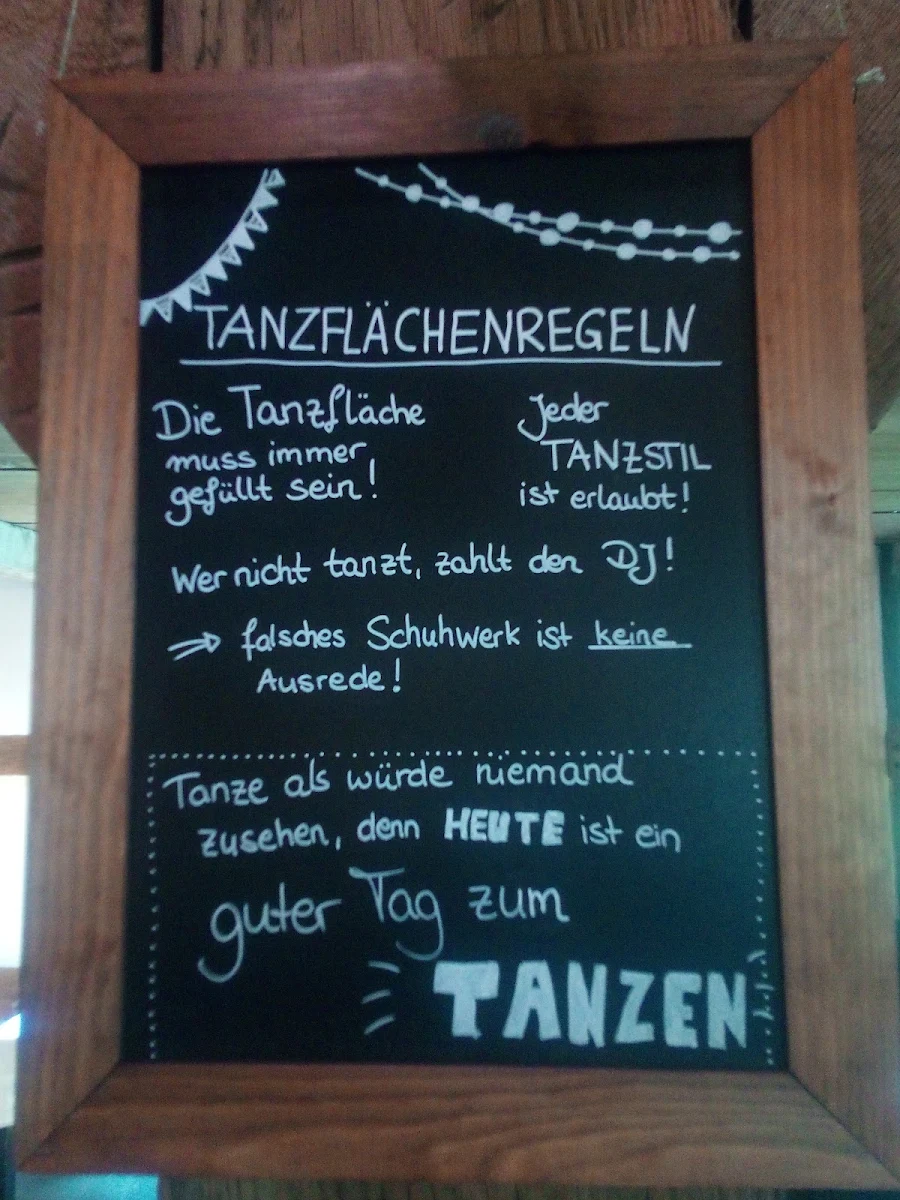 TANZFLÄCHENREGELN
Die Tanzfläche
muss immer
gefüllt sein!
Jeder
TANZSTIL
ist erlaubt!
Wer nicht tanzt, zahlt den DJ!
⇒ falsches Schuhwerk ist keine
Ausrede!
Tanze als würde niemand
zusehen, denn HEUTE ist ein
guter Tag zum
TANZEN